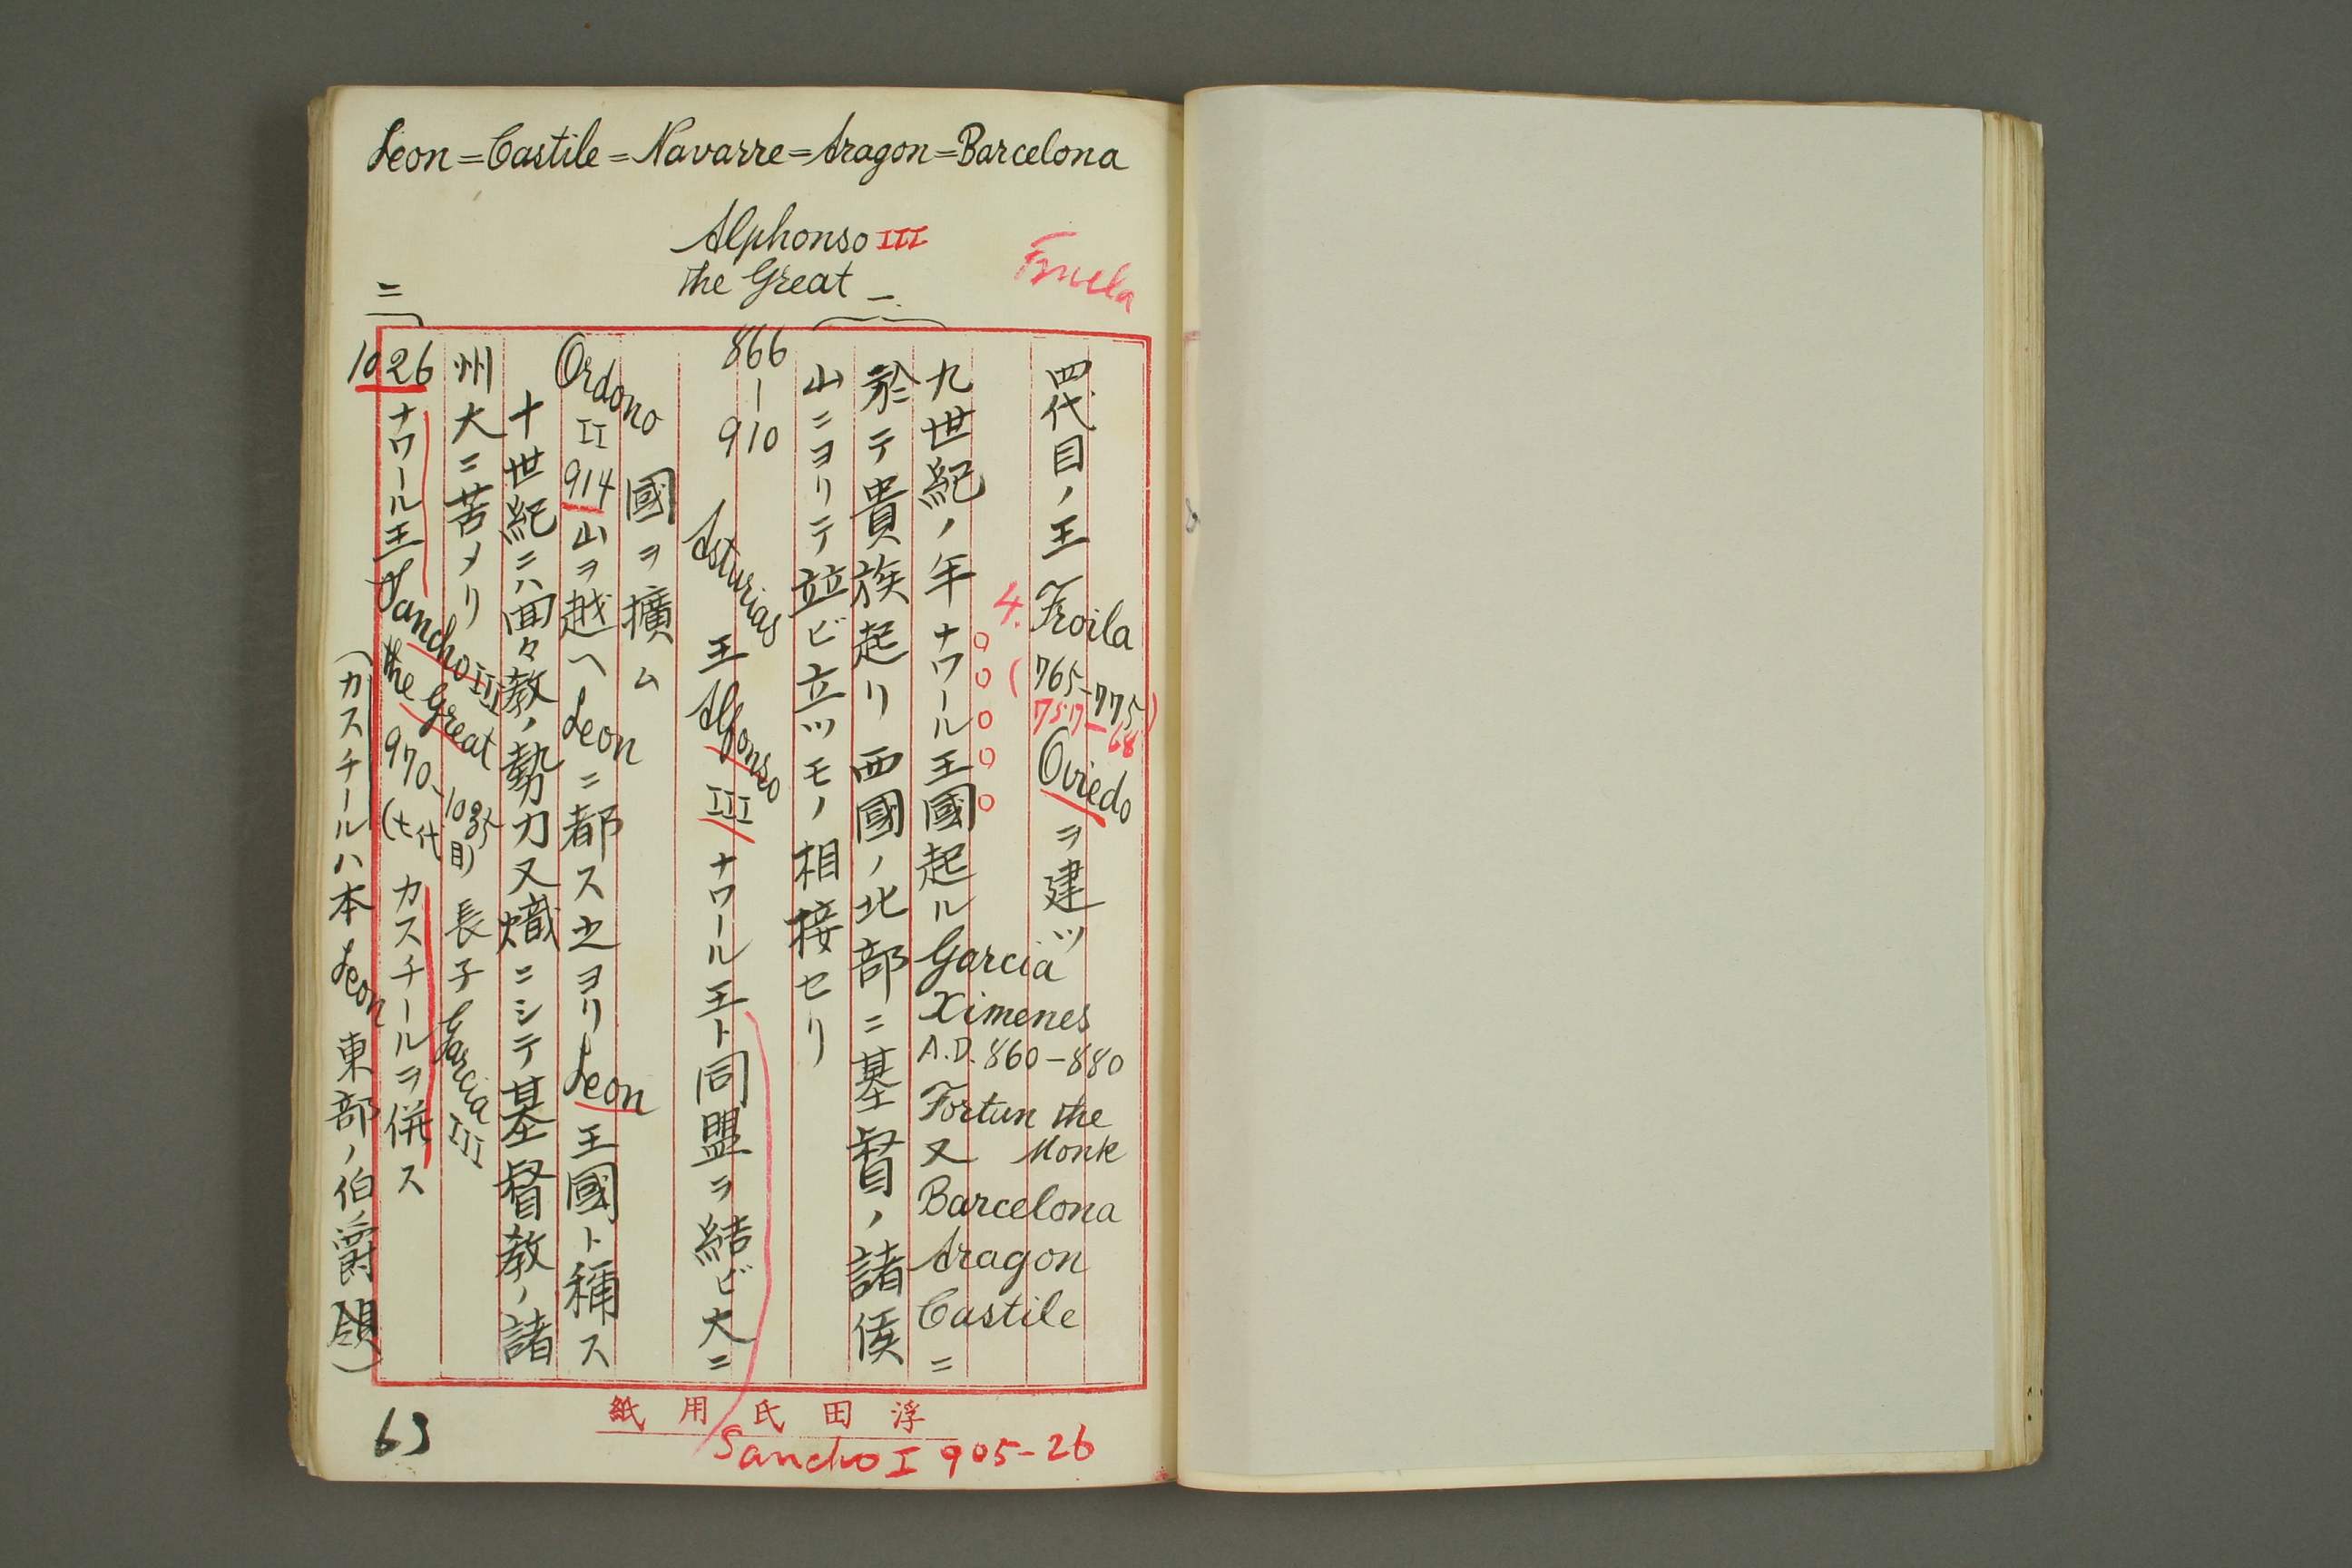 Leon=Castile=Navarre=Aragon=Barcelona
Alphonso III
the Great
Fruela
一
二
四代目ノ王 Froila 765-775 Oviedo ヲ建ツ
4. (757-68)
九世紀ノ年ナワール王國起ル Garcia Ximenes A.D. 860-880 Fortun the Monk 又 Barcelona Aragon Castile ニ
於テ貴族起リ西國ノ北部ニ基督ノ諸侯
山ニヨリテ竝ビ立ツモノ相接セリ
866-910 Asturias 王 Alfonso III ナワール王ト同盟ヲ結ビ大ニ
國ヲ擴ム
Ordono II 914 山ヲ越ヘ Leon ニ都ス之ヨリ Leon 王國ト稱ス
十世紀ニハ回々教ノ勢力又熾ニシテ基督教ノ諸
州大ニ苦メリ
1026 ナワール王 Sancho III the Great 970-1035 (七代目) カスチールヲ併ス
長子 Garcia III
(カスチールハ本 Leon 東部ノ伯爵領)
浮田氏用紙
Sancho I 905-26
63